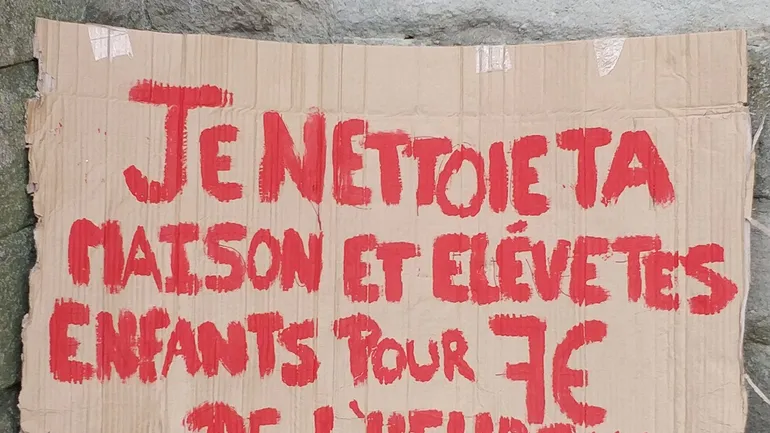 JE NETTOIE TA
MAISON ET ELÉVE TES
ENFANTS POUR 7€
DE L'HEURE